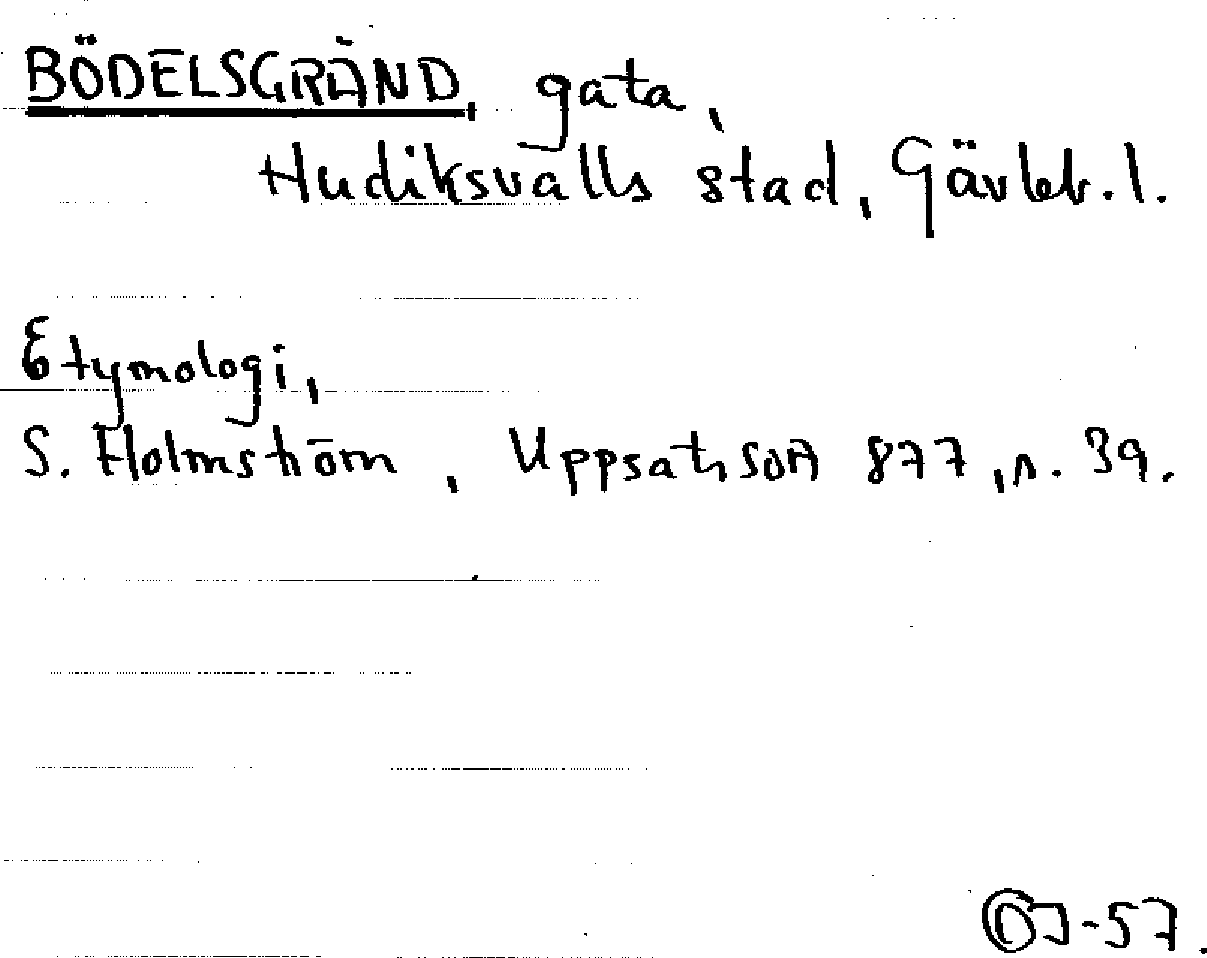 BÖDELSGRÄND, gata,
Hudiksvalls stad, Gävleb. l.
Etymologi,
S. Holmström, Uppsats SOA 877, s. 39.